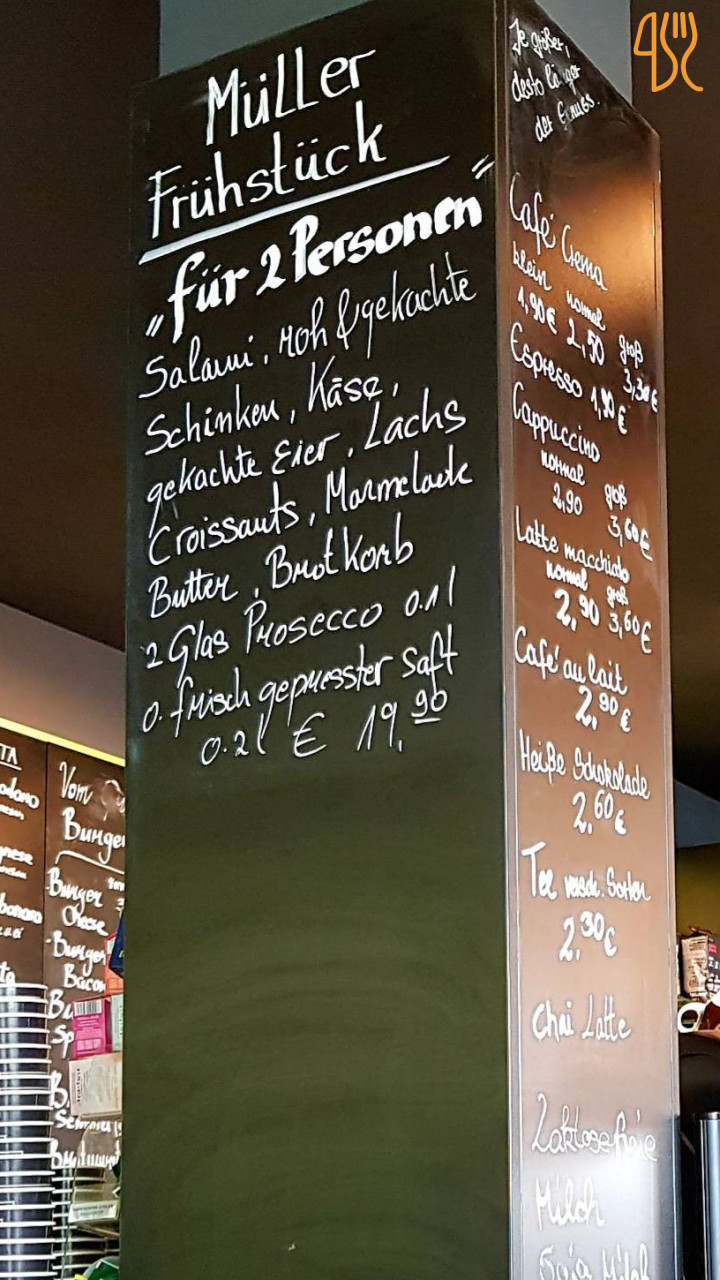 Müller
Frühstück
"für 2 Personen"
Salami, roh & gekachte
Schinken, Käse,
gekachte Eier, Lachs
Croissants, Marmelade
Butter, Brotkorb
2 Glas Prosecco 0.1l
o. frisch gepresster Saft
0.2l € 19,90
Je größer,
desto länger
der Genuss.
Café Crema
klein normal groß
1,90€ 2,50 3,30€
Espresso 1,90€
Cappuccino
normal groß
2,90 3,60€
Latte macchiato
normal groß
2,90 3,60€
Café au lait
2,90€
Heiße Schokolade
2,60€
Tee versch. Sorten
2,30€
Chai Latte
Laktosefreie
Milch
Soja Milch
Vom
Burger
Burger
Cheese
Burger
Bacon